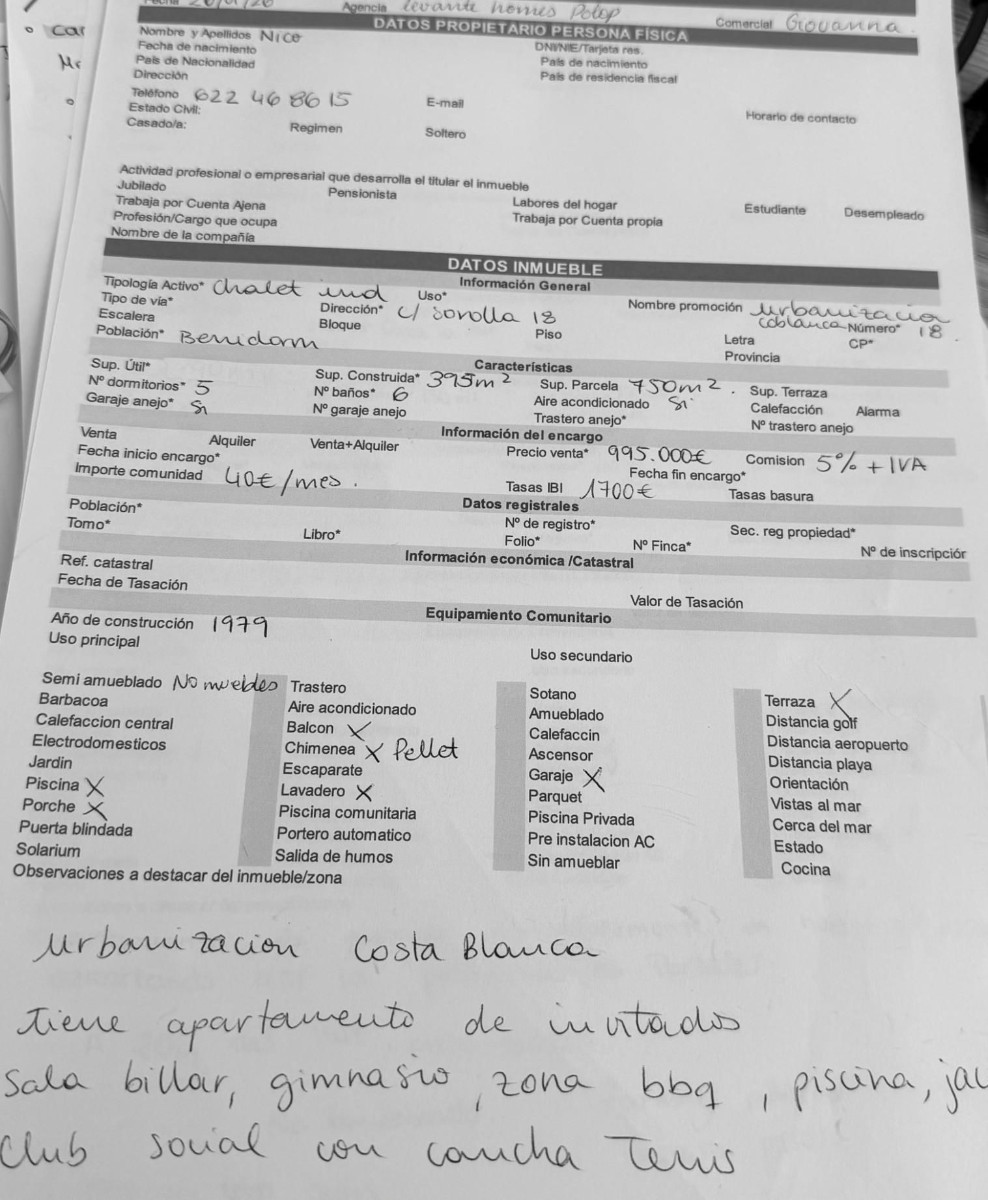 Agencia Levante homes Polop Comercial Giovanna.
DATOS PROPIETARIO PERSONA FÍSICA
Nombre y Apellidos Nico DNI/NIE/Tarjeta res.
Fecha de nacimiento País de nacimiento
País de Nacionalidad País de residencia fiscal
Dirección
Teléfono 622 46 86 15 E-mail Horario de contacto
Estado Civil:
Casado/a: Regimen Soltero
Actividad profesional o empresarial que desarrolla el titular el inmueble
Jubilado Pensionista Labores del hogar Estudiante Desempleado
Trabaja por Cuenta Ajena Trabaja por Cuenta propia
Profesión/Cargo que ocupa
Nombre de la compañía
DATOS INMUEBLE
Información General
Tipología Activo* Chalet ind Uso* Nombre promoción Urbanizacion coblanca
Tipo de vía* Dirección* C/ Sorolla 18 Número* 18
Escalera Bloque Piso Letra CP*
Población* Benidorm Provincia
Características
Sup. Útil* Sup. Construida* 395m² Sup. Parcela 750m². Sup. Terraza
Nº dormitorios* 5 Nº baños* 6 Aire acondicionado Si Calefacción Alarma
Garaje anejo* Si Nº garaje anejo Trastero anejo* Nº trastero anejo
Información del encargo
Venta Alquiler Venta+Alquiler Precio venta* 995.000€ Comision 5% + IVA
Fecha inicio encargo* Fecha fin encargo*
Importe comunidad 40€/mes. Tasas IBI 1700€ Tasas basura
Datos registrales
Población* Nº de registro* Sec. reg propiedad*
Tomo* Libro* Folio* Nº Finca* Nº de inscripción
Información económica /Catastral
Ref. catastral
Fecha de Tasación Valor de Tasación
Equipamiento Comunitario
Año de construcción 1979
Uso principal Uso secundario
Semi amueblado No muebles Trastero Sotano Terraza X
Barbacoa Aire acondicionado Amueblado Distancia golf
Calefaccion central Balcon X Calefaccin Distancia aeropuerto
Electrodomesticos Chimenea X Pellet Ascensor Distancia playa
Jardin Escaparate Garaje X Orientación
Piscina X Lavadero X Parquet Vistas al mar
Porche X Piscina comunitaria Piscina Privada Cerca del mar
Puerta blindada Portero automatico Pre instalacion AC Estado
Solarium Salida de humos Sin amueblar Cocina
Observaciones a destacar del inmueble/zona
Urbanizacion Costa Blanca
tiene apartamento de invitados
Sala billar, gimnasio, zona bbq, piscina, jac
Club social con cancha Tenis